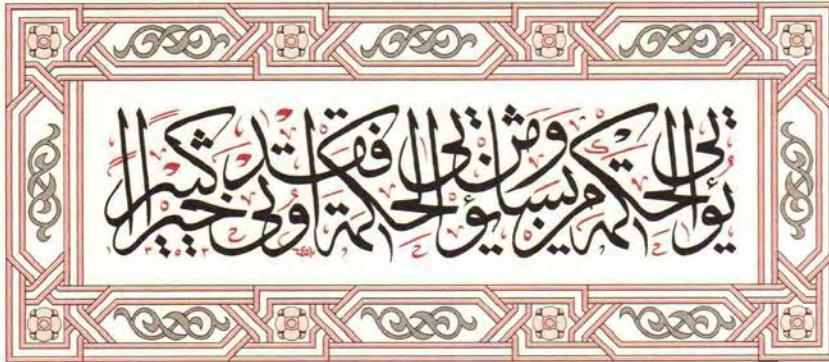 يؤتي الحكمة من يشاء ومن يؤتى الحكمة فقد أوتي خيرا كثيرا
١٣٥٢